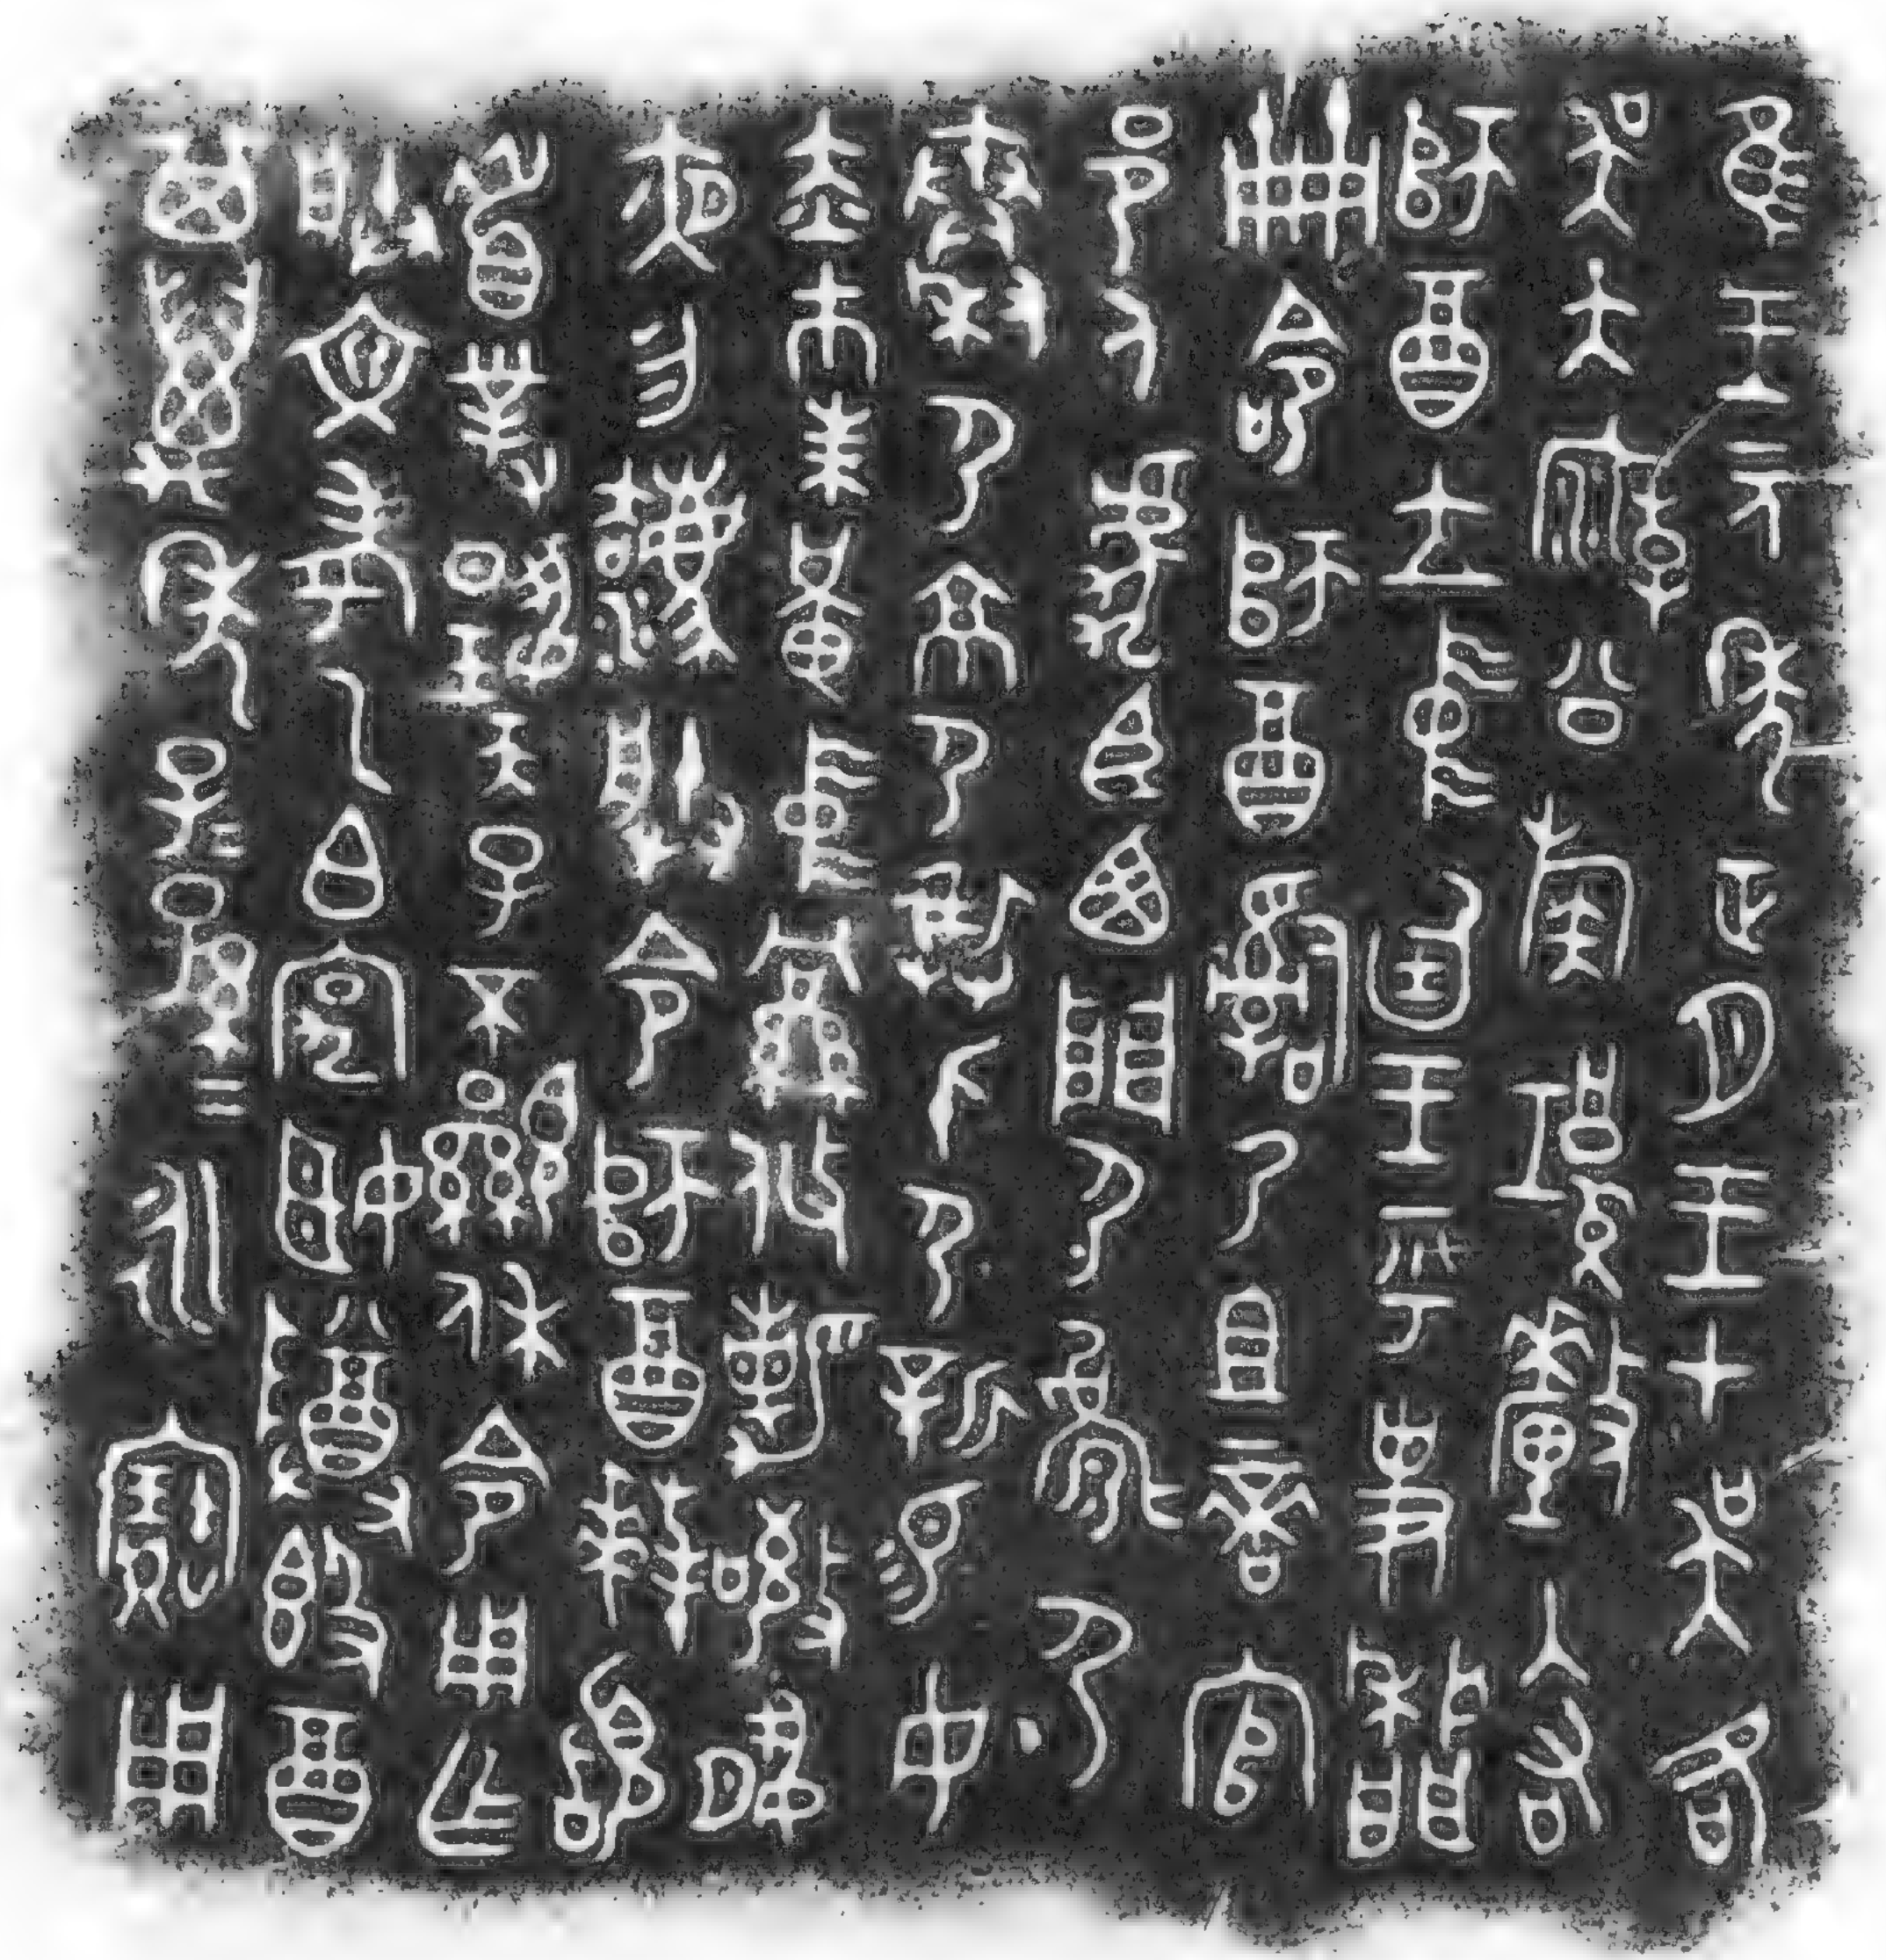 隹王元年正月王才吳各
吳大廟公族釐入右
師酉立中廷王乎史墻
冊命師酉嗣乃且啻官
邑人虎臣西門尸𩁹尸
秦尸京尸畀人尸新易女
赤巿朱黃中絅攸勒敬夙
夜勿灋朕令師酉拜䭫
首對揚天子不顯休令用乍
朕文考乙白宄姬尊簋酉
其萬年子=孫=永寶用